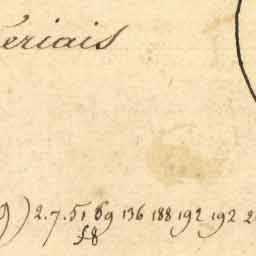 eriais
9) 2. 7. 51 69 136 188 192 192 2
58